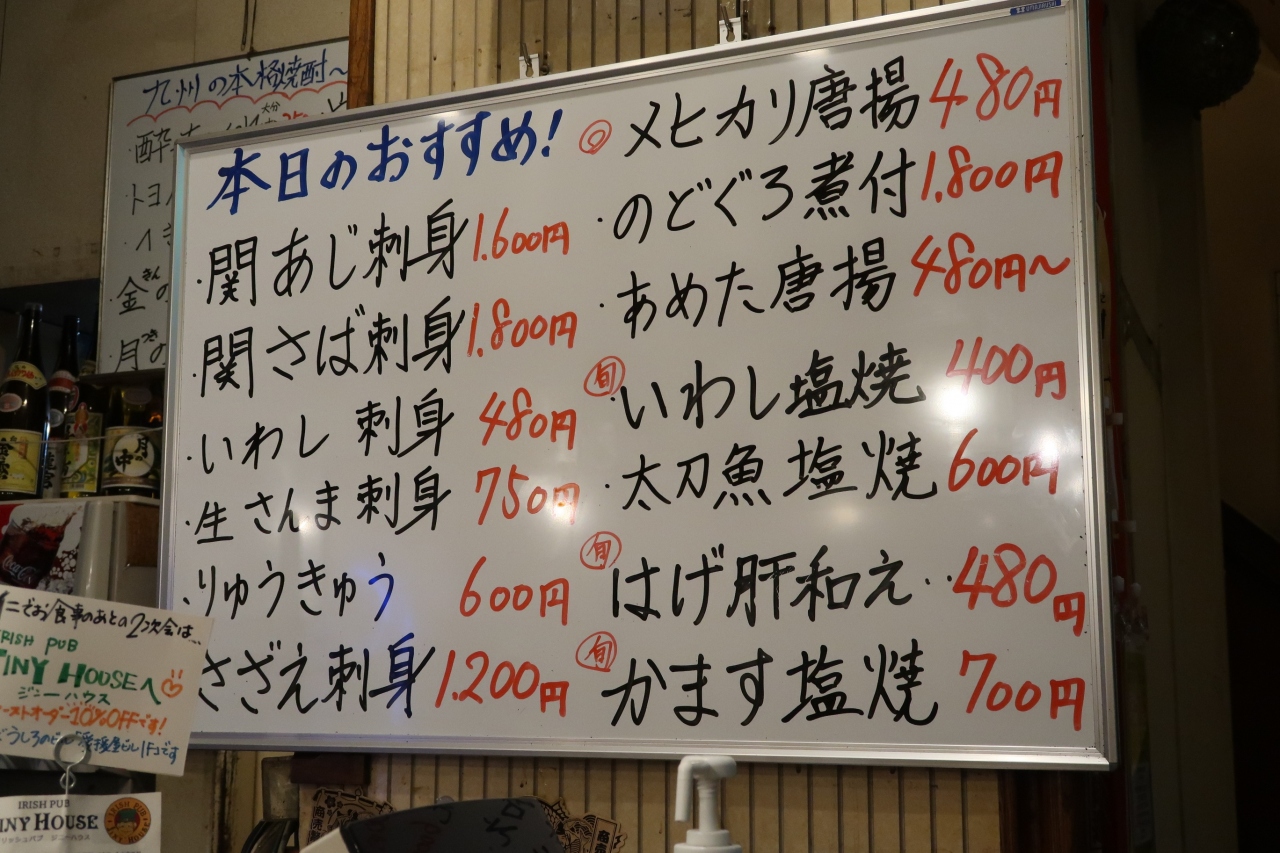 九州の本格焼酎~
大分
トヨ
金の
きん
月の
つき
本日のおすすめ!
・関あじ刺身 1.600円
・関さば刺身 1.800円
・いわし刺身 480円
・生さんま刺身 750円
・りゅうきゅう 600円
さざえ刺身 1.200円
◎メヒカリ唐揚 480円
・のどぐろ煮付 1.800円
・あめた唐揚 480円~
旬・いわし塩焼 400円
・太刀魚塩焼 600円
旬はげ肝和え‥480円
旬かます塩焼 700円
月の中
でお食事のあとの2次会は、
IRISH PUB
INY HOUSEへ
ジニーハウス
ーストオーダー10%OFFです!
IRISH PUB
INY HOUSE
リッシュパブ ジニーハウス